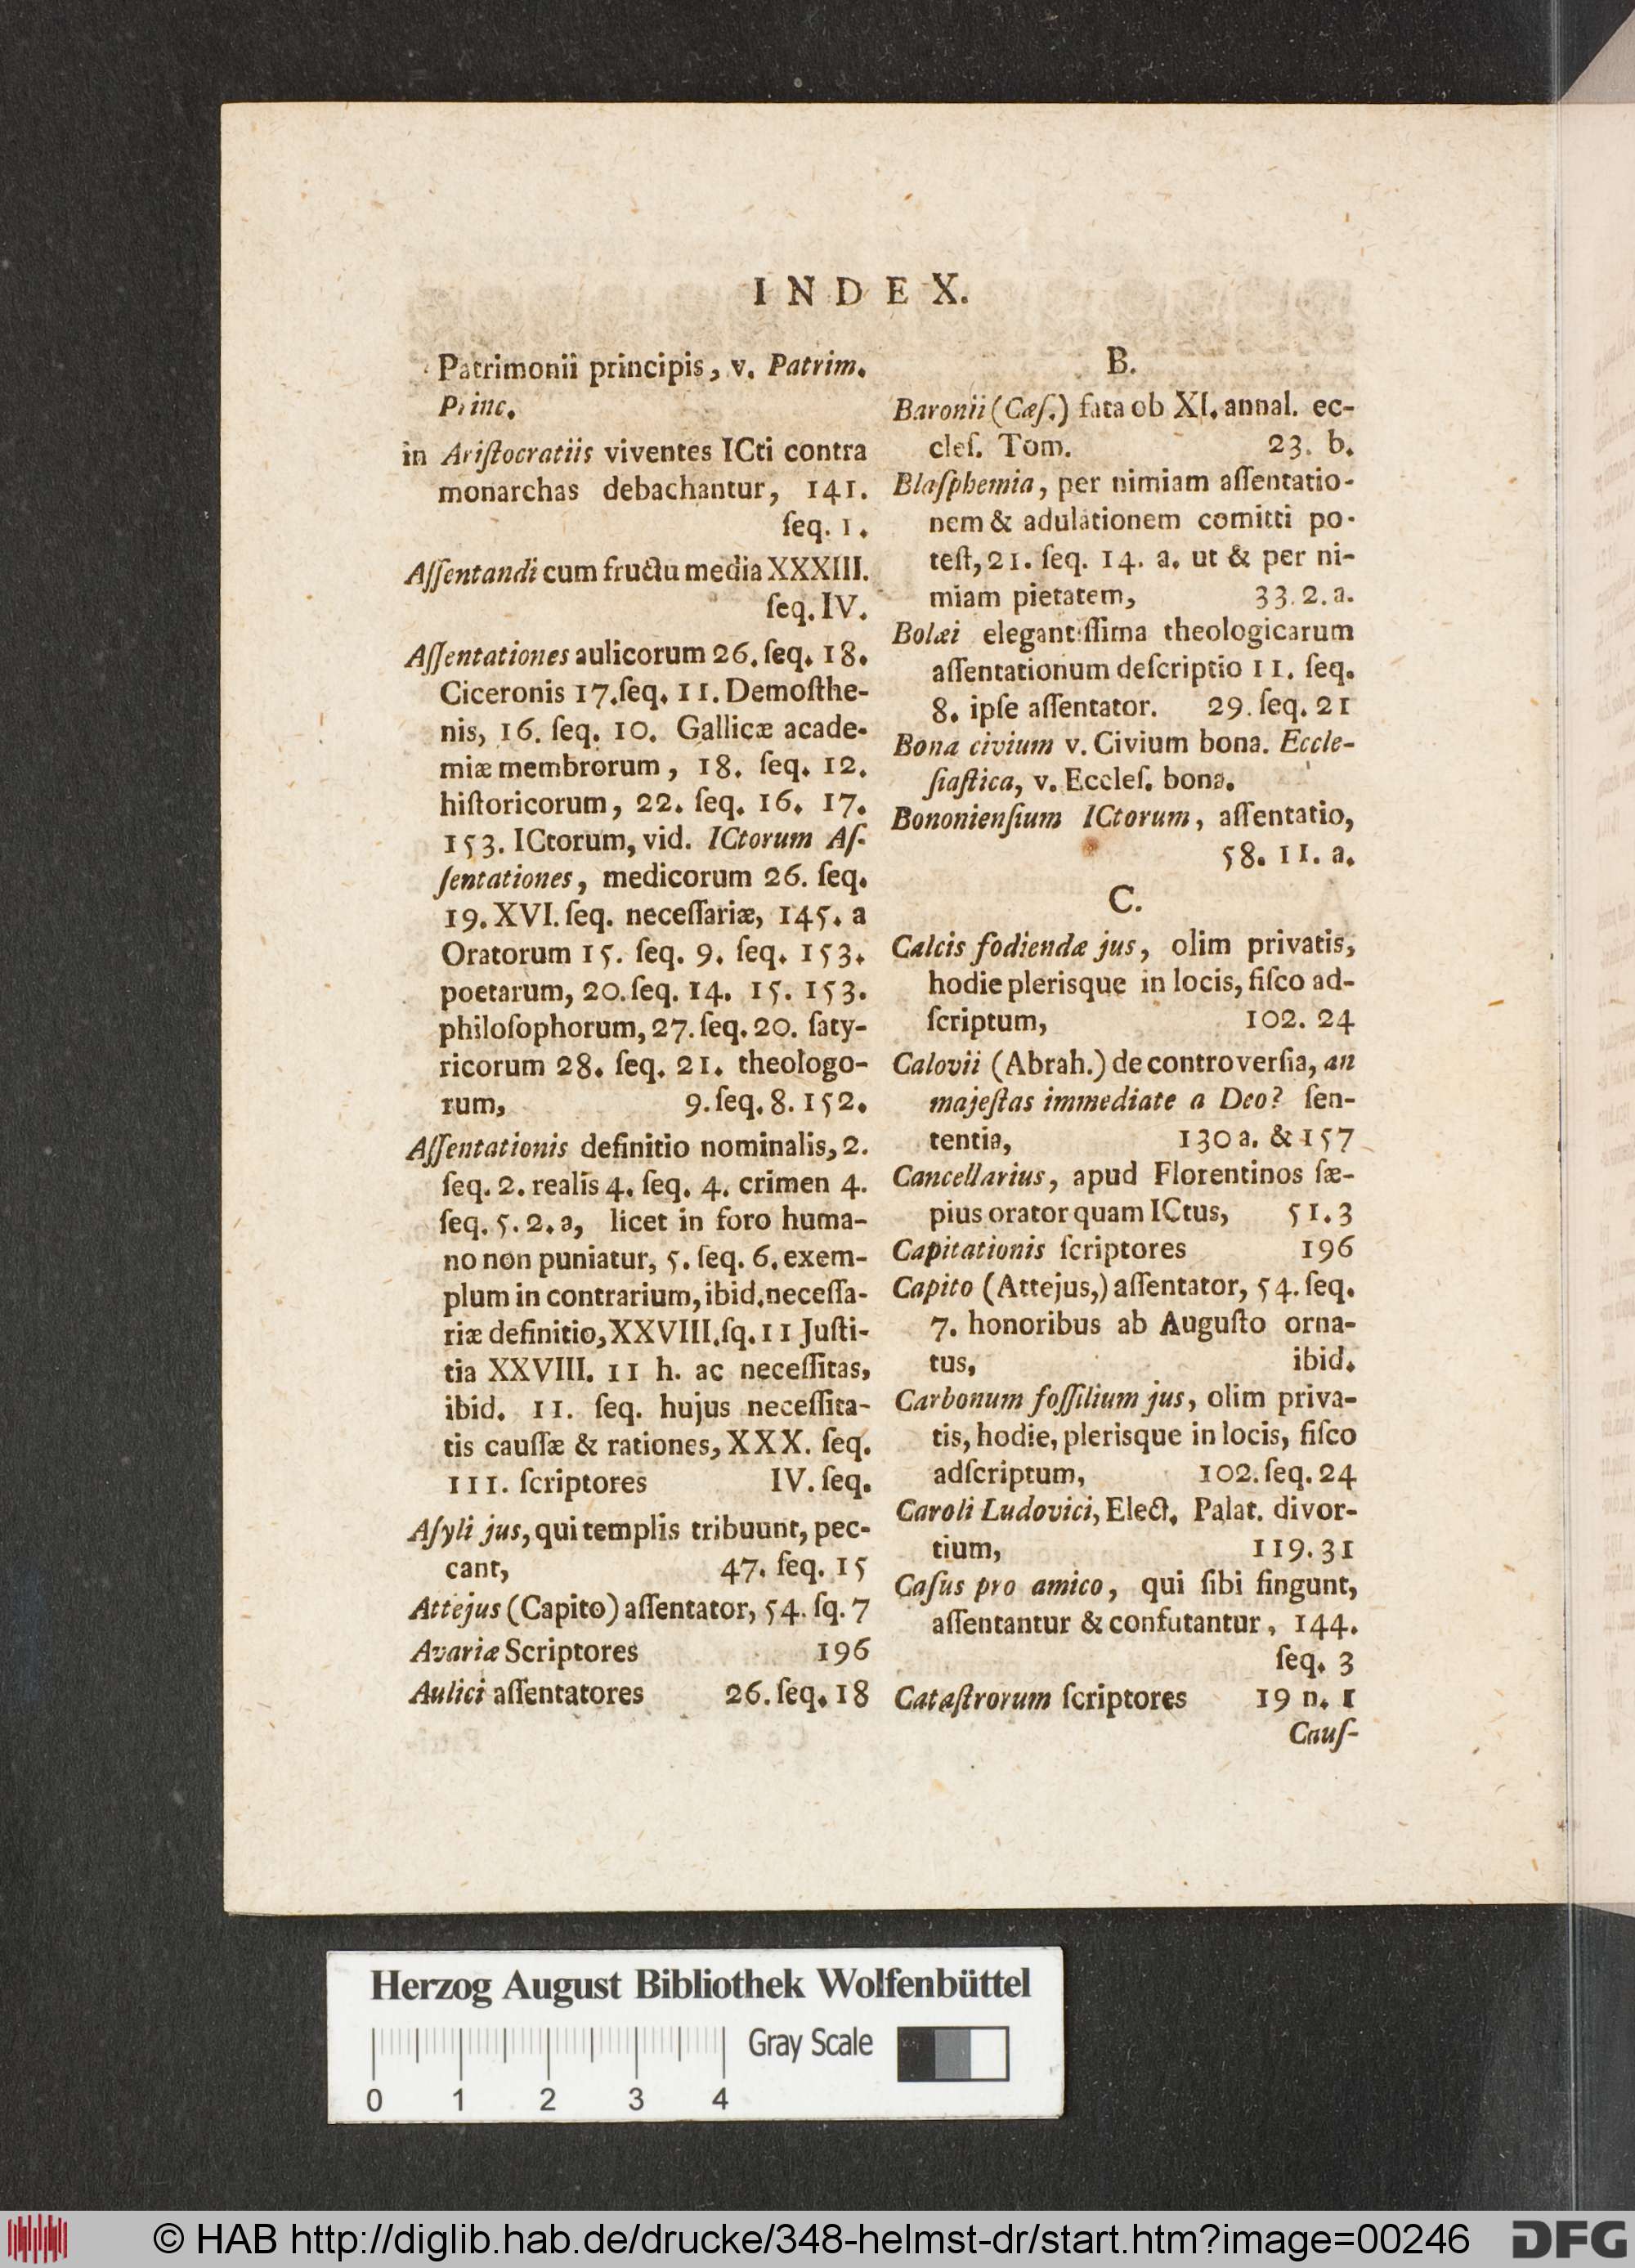 INDEX.
Patrimonii principis, v. Patrim.
Princ.
in Ariſtocratiis viventes ICti contra
monarchas debachantur, 141.
ſeq. 1.
Aſſentandi cum fructu media XXXIII.
ſeq. IV.
Aſſentationes aulicorum 26. ſeq. 18.
Ciceronis 17. ſeq. 11. Demoſthe-
nis, 16. ſeq. 10. Gallicæ acade-
miæ membrorum, 18. ſeq. 12.
hiſtoricorum, 22. ſeq. 16. 17.
153. ICtorum, vid. ICtorum Aſ-
ſentationes, medicorum 26. ſeq.
19. XVI. ſeq. neceſſariæ, 145. a
Oratorum 15. ſeq. 9. ſeq. 153.
poetarum, 20. ſeq. 14. 15. 153.
philoſophorum, 27. ſeq. 20. ſaty-
ricorum 28. ſeq. 21. theologo-
rum, 9. ſeq. 8. 152.
Aſſentationis definitio nominalis, 2.
ſeq. 2. realis 4. ſeq. 4. crimen 4.
ſeq. 5. 2. a, licet in foro huma-
no non puniatur, 5. ſeq. 6. exem-
plum in contrarium, ibid. neceſſa-
riæ definitio, XXVIII. ſq. 11 Juſti-
tia XXVIII. 11 h. ac neceſſitas,
ibid. 11. ſeq. hujus neceſſita-
tis cauſſæ & rationes, XXX. ſeq.
III. ſcriptores IV. ſeq.
Aſyli jus, qui templis tribuunt, pec-
cant, 47. ſeq. 15
Attejus (Capito) aſſentator, 54. ſq. 7
Avariæ Scriptores 196
Aulici aſſentatores 26. ſeq. 18
B.
Baronii (Cæſ.) fata ob XI. annal. ec-
cleſ. Tom. 23. b.
Blaſphemia, per nimiam aſſentatio-
nem & adulationem comitti po-
teſt, 21. ſeq. 14. a. ut & per ni-
miam pietatem, 33. 2. a.
Bolæi elegantiſſima theologicarum
aſſentationum deſcriptio 11. ſeq.
8. ipſe aſſentator. 29. ſeq. 21
Bona civium v. Civium bona. Eccle-
ſiaſtica, v. Eccleſ. bona.
Bononienſium ICtorum, aſſentatio,
58. 11. a.
C.
Calcis fodiendæ jus, olim privatis,
hodie plerisque in locis, fiſco ad-
ſcriptum, 102. 24
Calovii (Abrah.) de controverſia, an
majeſtas immediate a Deo? ſen-
tentia, 130 a. & 157
Cancellarius, apud Florentinos ſæ-
pius orator quam ICtus, 51. 3
Capitationis ſcriptores 196
Capito (Attejus,) aſſentator, 54. ſeq.
7. honoribus ab Auguſto orna-
tus, ibid.
Carbonum foſſilium jus, olim priva-
tis, hodie, plerisque in locis, fiſco
adſcriptum, 102. ſeq. 24
Caroli Ludovici, Elect. Palat. divor-
tium, 119. 31
Caſus pro amico, qui ſibi fingunt,
aſſentantur & confutantur, 144.
ſeq. 3
Cataſtrorum ſcriptores 19 n. 1
Cauſ-
Herzog August Bibliothek Wolfenbüttel
Gray Scale
0 1 2 3 4
© HAB http://diglib.hab.de/drucke/348-helmst-dr/start.htm?image=00246
DFG